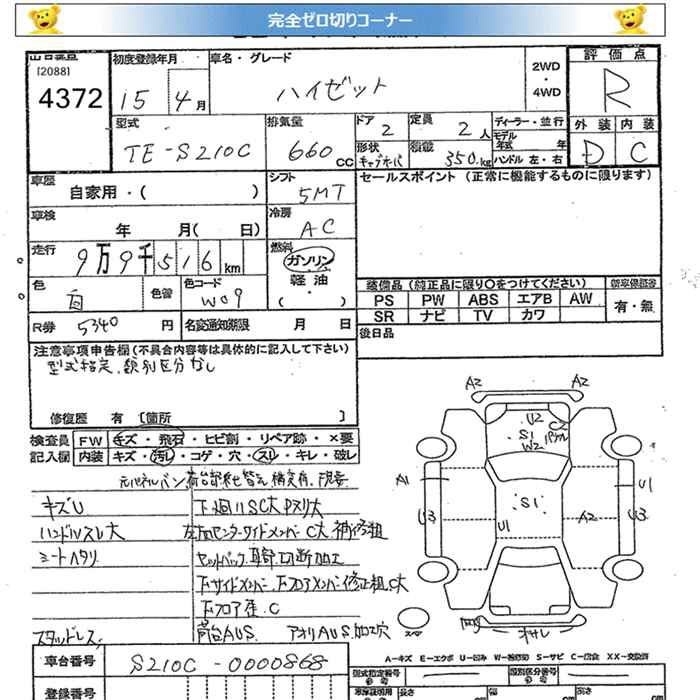 完全ゼロ切りコーナー
[2088]
4372
初度登録年月
15 4月
車名・グレード
ハイゼット
2WD
・
4WD
評価点
R
型式
TE-S210C
排気量
660 CC
ドア
2
定員
2人
ディーラー・並行
モデル年式 年
ハンドル 左・右
形状
積載
350kg
外装 内装
D C
車歴
自家用・( )
シフト
5MT
セールスポイント (正常に機能するものに限ります)
車検
年 月( 日)
冷房
AC
走行
9万9千516km
燃料
ガソリン
軽油
・( )
色
白
色替
色コード
W09
装備品 (純正品に限り○をつけてください)
PS PW ABS エアB AW
SR ナビ TV カワ
新車保証書
有・無
R券 5340円
名変通知期限 月 日
後日品
注意事項申告欄(不具合内容等は具体的に記入して下さい)
型式指定、類別区分なし
修復歴 有 [箇所 ]
検査員記入欄
FW キズ・飛石・ヒビ割・リペア跡・×要
内装 キズ・汚レ・コゲ・穴・スリ・キレ・破レ
キズU
ハンドルスレ大
シートヘタリ
スタッドレス
下廻りSC大
セットバック
切断加工
下サイドメンバー、下フロアメンバー修正粗、C大
下フロア歪、C
荷台AUS、アオリAUS、加工穴
A2 A2
U2
C2
S1
W2
A1
U3
S1
U1
A2
U1
U3
車台番号
S210C-0000868
登録番号
A-キズ E-エクボ U-凹ミ W-補修跡 S-サビ C-腐食 XX-交換済
型式指定番号
類別区分番号
長さ
幅
高さ